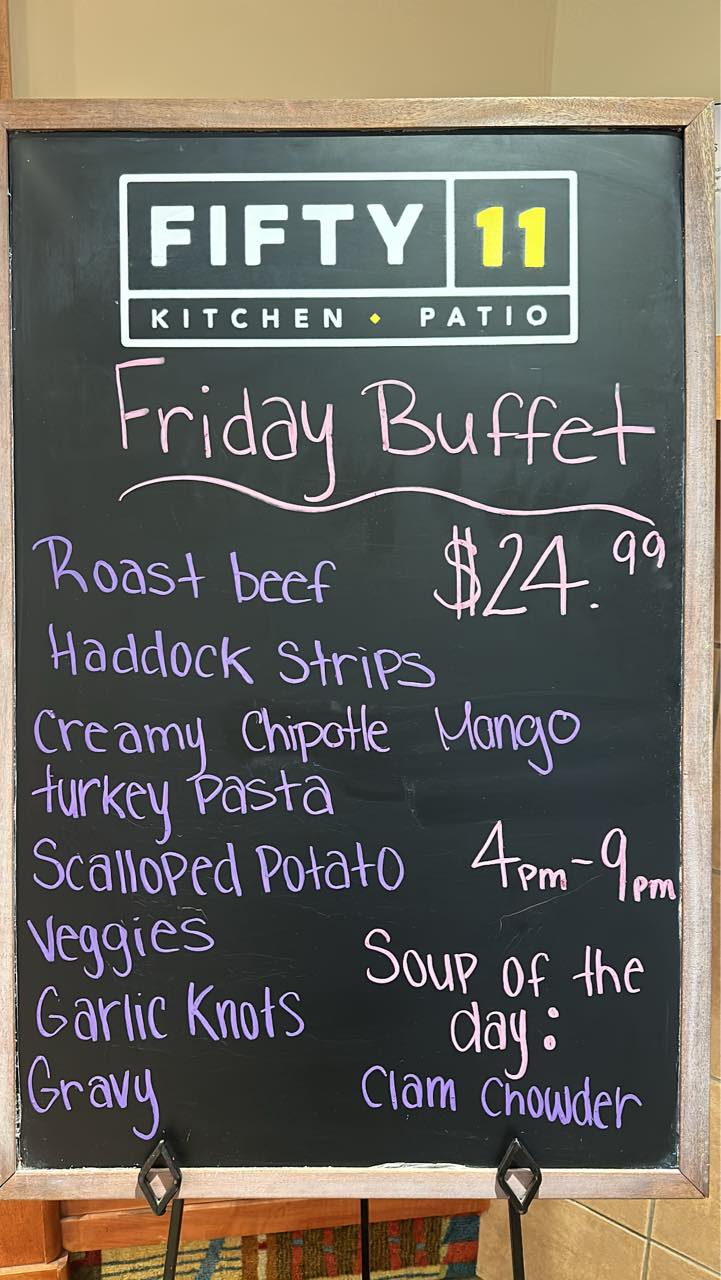 FIFTY 11
KITCHEN • PATIO
Friday Buffet
$24.99
Roast beef
Haddock Strips
Creamy Chipotle Mango
turkey Pasta
Scalloped Potato
Veggies
Garlic Knots
Gravy
4pm-9pm
Soup of the
day:
Clam Chowder